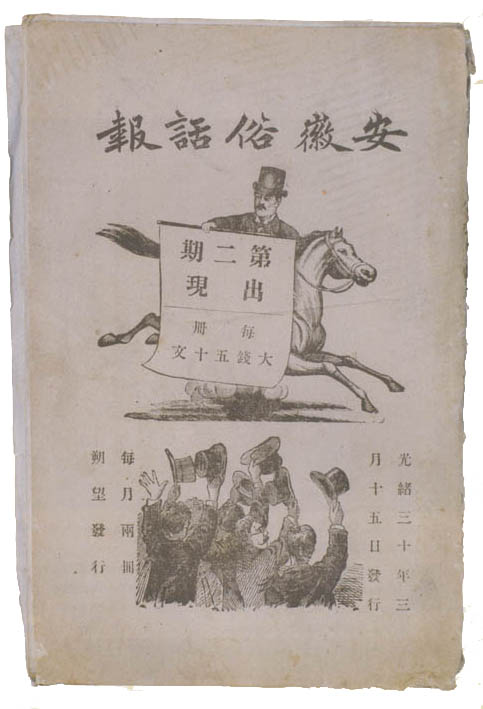 安徽俗話報
第二期
出現
每冊
大錢五十文
光緒三十年三
月十五日發行
每月兩冊
朔望發行